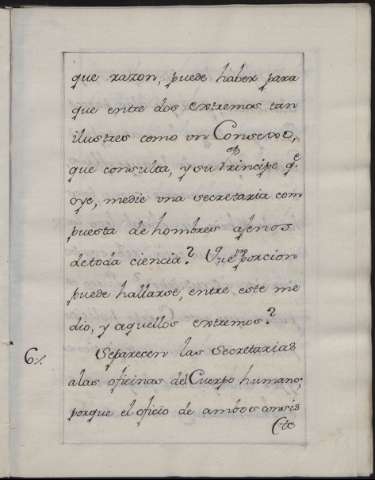 que razon, puede haber para
que entre dos extremos tan
ilustres como un Consexo,
que consulta, y su Principe qe
oye, medie una secretaria com
puesta de hombres agenos
de toda ciencia? Que porcion
puede hallarse, entre este me
dio, y aquellos extremos?
6. Separecen las Secretarias
alas oficinas del Cuerpo humano,
porque el oficio de ambos consis